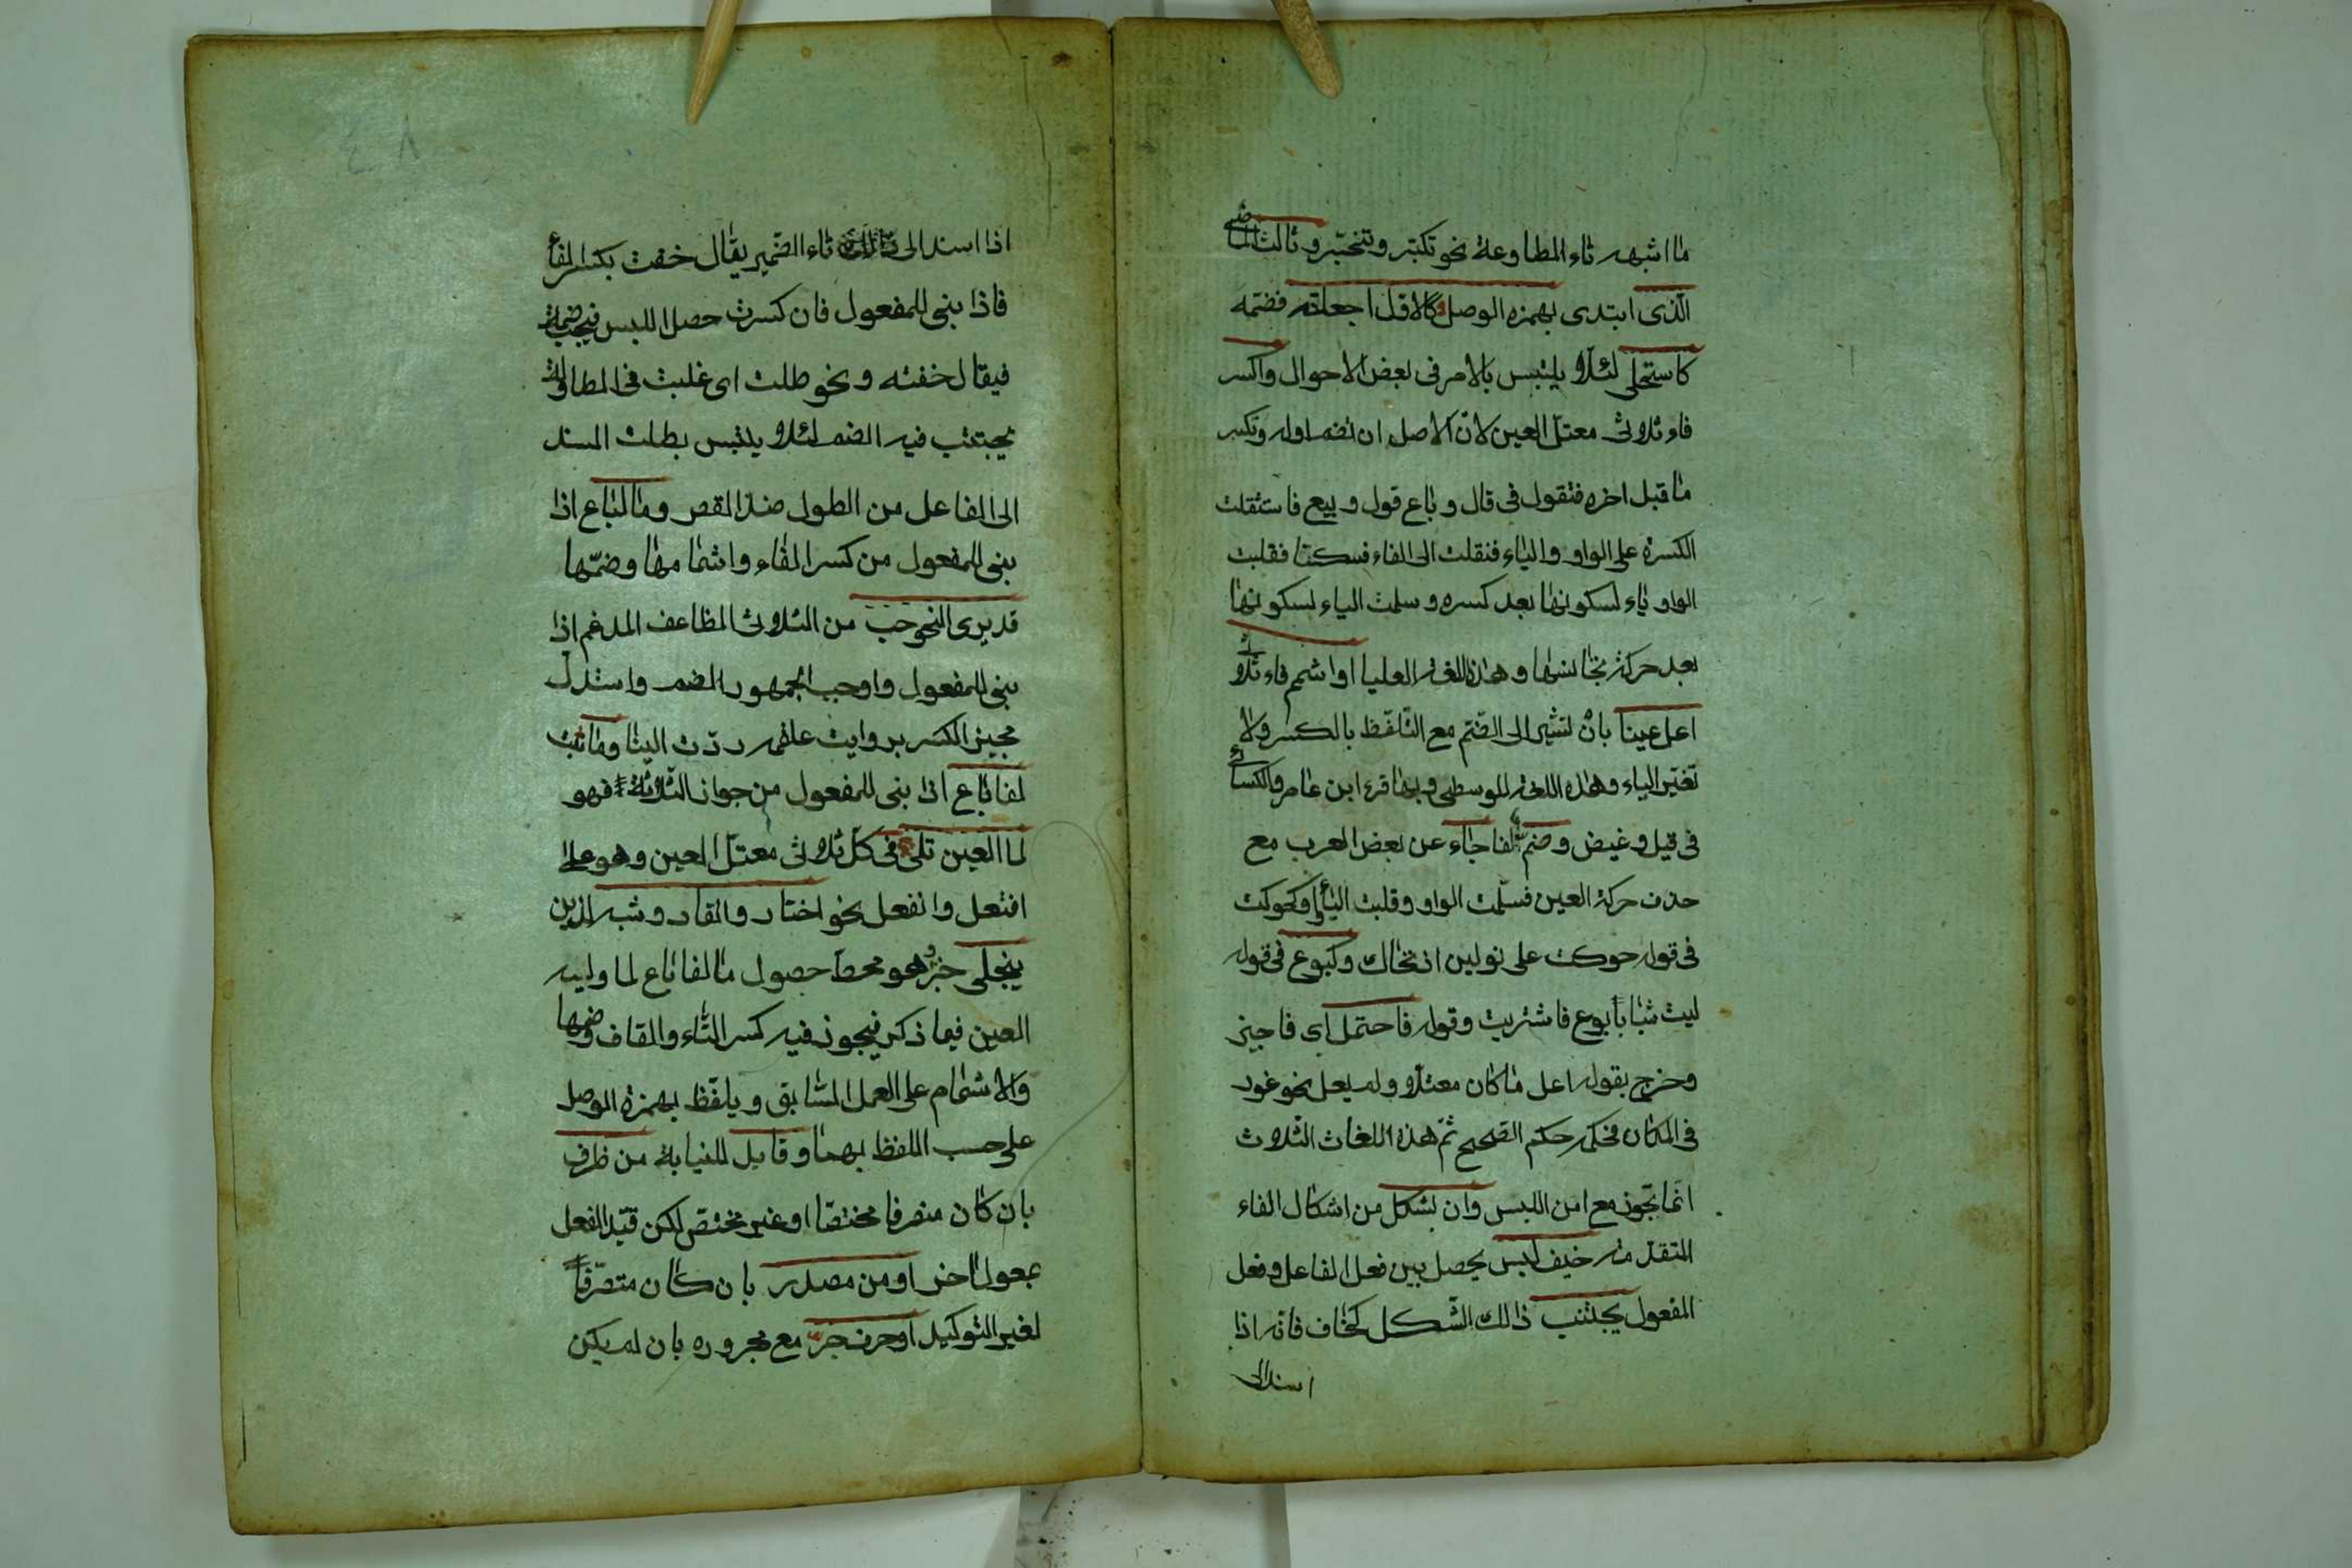 ما اشبه تاء المطاوعة نحو تكبّر وتنحيّز وثالث الماضي
الّذى ابتدى بهمزه الوصل كالاوّل اجعلنّه فضمّه
كاستحلى لئلا يلتبس بالامر فى بعض الاحوال واكسر
فاء ثلاثى معتلّ العين لانّ الاصل ان تضم اوله وتكسر
ما قبل اخره فتقول فى قال وباع قول وبيع فاستثقلت
الكسرة على الواو والياء فنقلت الى الفاء فسكنتا فقلبت
الواو ياء لسكونها بعد كسره وسلمت الياء لسكونها
بعد حركة تجانسها وهذه اللغة العليا او اشمم فاء ثلاثى
اعلّ عينا بان تشير الى الضّم مع التّلفّظ بالكسر ولا
تغيّر الياء وهذه اللغة الوسطى وبها قرء ابن عامر والكسائى
فى قيل وغيض وضم الفا جاء عن بعض العرب مع
حذف حركة العين فسلمت الواو وقلبت الياء واوا كحوكت
فى قوله حوكت على نولين اذ تحاك وكبوع فى قوله
ليت شبابا بوع فاشتريت وقوله فاحتمل اى فاجيز
وخرج بقوله اعل ما كان معتلّا ولم يعل نحو عور
فى المكان فحكمه حكم الصّحيح ثمّ هذه اللغات الثلاث
انّما تجوز مع امن اللبس وان بشكل من اشكال الفاء
المتقدّمة خيف لبس يحصل بين فعل الفاعل وفعل
المفعول يجتنب ذالك الشّكل كخاف فانّه اذا
اسند الى
٤٨
اذا اسند الى تاء الضّمير يقال خفت بكسر الفاء
فاذا بنى للمفعول فان كسرت حصل اللبس فيجب ضمّه
فيقال خفته ونحو طلت اى غلبت فى المطاولة
يجتنب فيه الضم لئلا يلتبس بطلت المسند
الى الفاعل من الطول ضدّ القصر وما لباع اذا
بنى للمفعول من كسر الفاء واشمامها وضمّها
قد يرى لنحو حبّ من الثلاثى المضاعف المدغم اذا
بنى للمفعول واوجب الجمهور الضم واستدلّ
مجيز الكسر بروايت علقمه ردّت الينا وما ثبت
لفا باع اذا بنى للمفعول من جواز الثلاثة فهو
لما العين تلى فى كلّ ثلاثى معتلّ العين وهو على
افتعل وانفعل نحو اختار وانقاد وشبه الذين
ينجلى خبر هو محطّ حصول ما لفا باع لما وليه
العين فيما ذكر فيجوز فيه كسر التّاء والقاف وضمها
والاشمام على العمل السّابق ويلفّظ بهمزة الوصل
على حسب اللفظ بهما وقابل للنيابة من ظرف
بان كان متصرفا مختصّا او غير مختصّ لكن قيّد الفعل
بمعول اخر او من مصدر بان كان متصرّفا
لغير التوكيد او حرف جرّ مع مجروره بان لم يكن